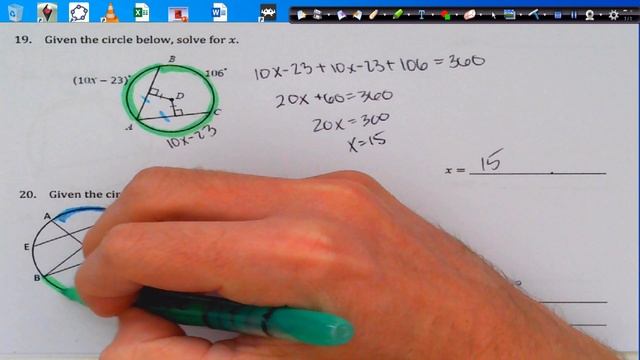 19. Given the circle below, solve for x.
B
(10x − 23)°
106°
D
A
C
10x-23
10x-23+10x-23+106=360
20x+60=360
20x=300
x=15
x = 15
20. Given the cir
A
E
B